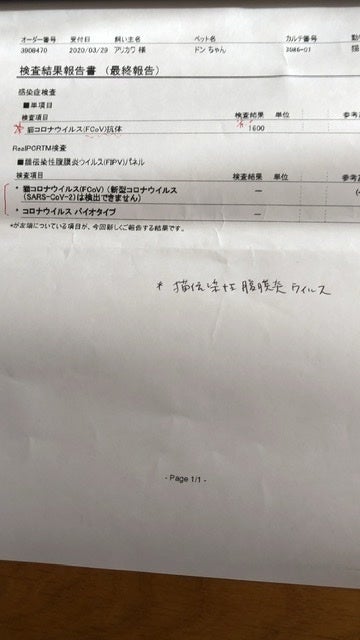 オーダー番号 受付日 飼い主名 ペット名 カルテ番号
3908470 2020/03/29 アリカワ 様 ドン ちゃん 3086-01 猫
検査結果報告書 (最終報告)
感染症検査
■単項目
検査項目 検査結果 単位 参考
* 猫コロナウイルス(FCoV)抗体 * 1600
RealPCRTM検査
■猫伝染性腹膜炎ウイルス(FIPV)パネル
検査項目 検査結果 単位 参考
* 猫コロナウイルス(FCoV) (新型コロナウイルス － (-
(SARS-CoV-2)は検出できません)
* コロナウイルス バイオタイプ －
*が左端についている項目が、今回新しくご報告する結果です。
* 猫伝染性腹膜炎ウイルス
- Page 1/1 -